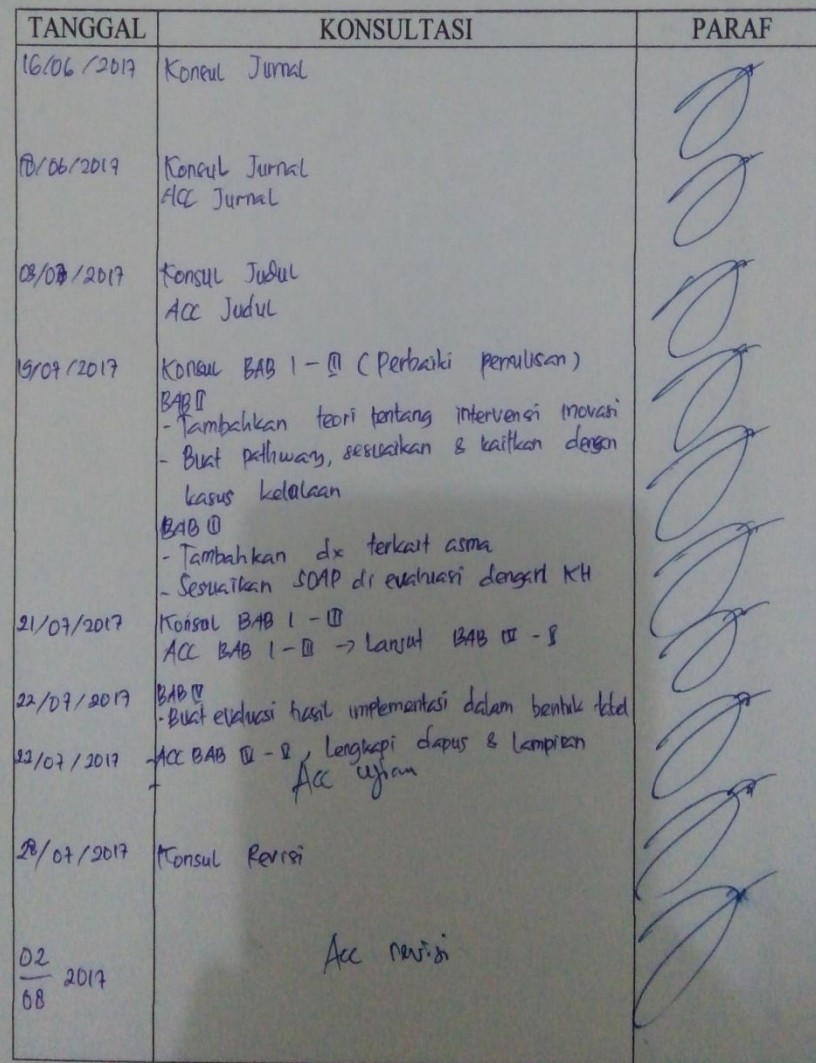 TANGGAL KONSULTASI PARAF
16/06/2017 Konsul Jurnal
18/06/2017 Konsul Jurnal
ACC Jurnal
03/07/2017 Konsul Judul
ACC Judul
19/07/2017 Konsul BAB I - III (Perbaiki penulisan)
BAB II
- Tambahkan teori tentang intervensi inovasi
- Buat pathway, sesuaikan & kaitkan dengan
kasus kelolaan
BAB III
- Tambahkan dx terkait asma
- Sesuaikan SOAP di evaluasi dengan KH
21/07/2017 Konsul BAB I - III
ACC BAB I - III → Lanjut BAB IV - V
22/07/2017 BAB IV
- Buat evaluasi hasil implementasi dalam bentuk tabel
22/07/2017 - ACC BAB IV - V, Lengkapi dapus & Lampiran
Acc ujian
28/07/2017 Konsul Revisi
02/08 2017 Acc revisi